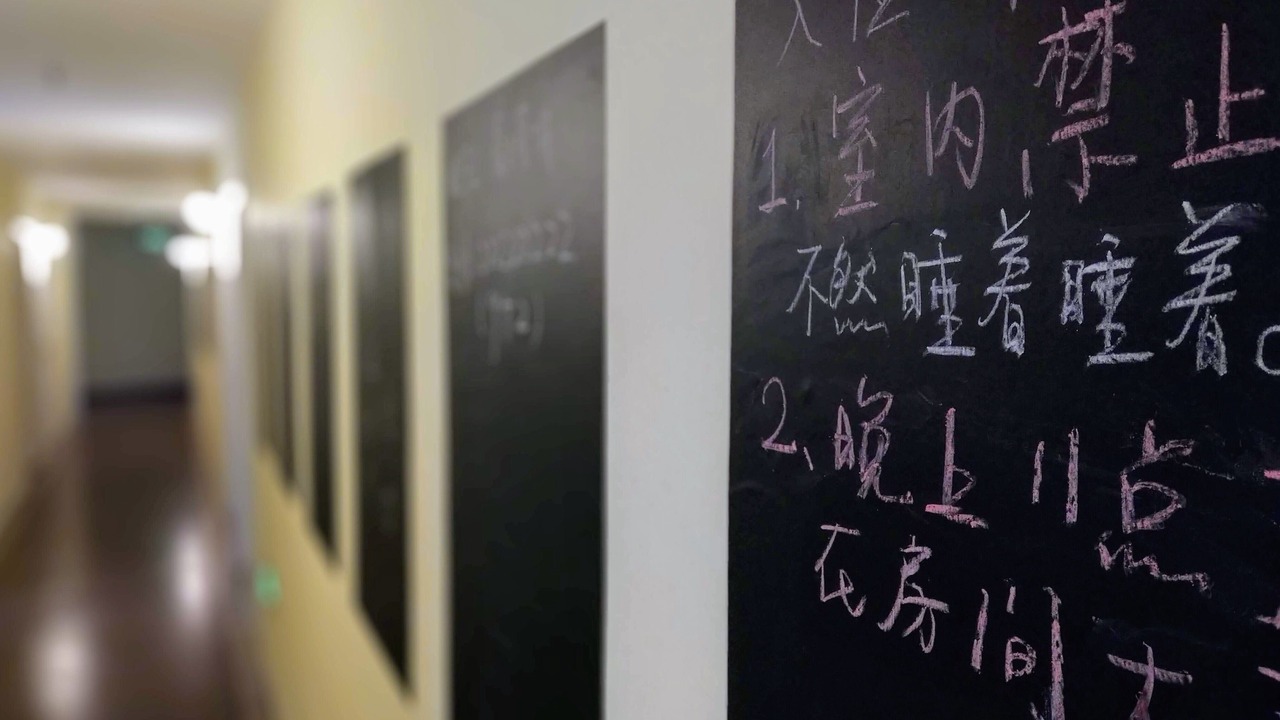 入住
1. 室内禁止
不然睡着睡着。
2、晚上11点
在房间大